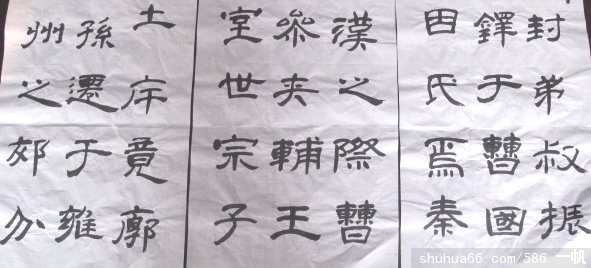 封弟叔振
鐸于曹國
因氏焉秦
漢之際曹
參夾輔王
室世宗子
土斥竟廓
孫遷于雍
州之郊分
shuhua66.com/586 一帆